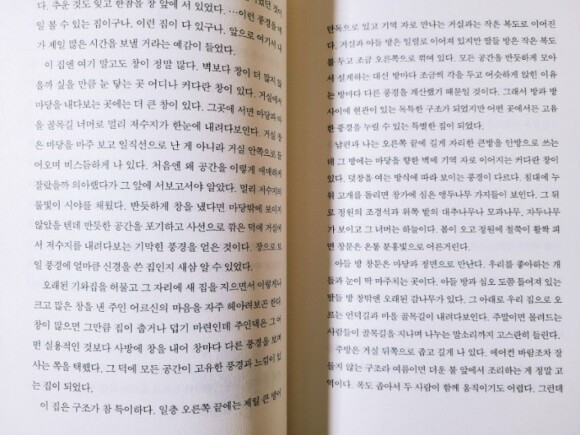 다. 추운 것도 잊고 한참을 창 앞에 서 있었다. …이런 풍경을 매
일 볼 수 있는 집이구나. 이런 집이 다 있구나. 앞으로 여기서 내
가 제일 많은 시간을 보낼 거라는 예감이 들었다.
이 집엔 여기 말고도 창이 정말 많다. 벽보다 창이 더 많지 않
을까 싶을 만큼 눈 닿는 곳 어디나 커다란 창이 있다. 거실에서
마당을 내다보는 곳에는 더 큰 창이 있다. 그곳에 서면 마당과
동네 골목길 너머로 멀리 저수지가 한눈에 내려다보인다. 거실 창
은 마당을 마주 보고 일직선으로 난 게 아니라 거실 안쪽으로 들
어오며 비스듬하게 나 있다. 처음엔 왜 공간을 이렇게 애매하게
잘랐을까 의아했다가 그 앞에 서보고서야 알았다. 멀리 저수지의
물빛이 시야를 채웠다. 반듯하게 창을 냈다면 마당밖에 보이지
않았을 텐데 반듯한 공간을 포기하고 사선으로 깎은 덕에 거실에
서 저수지를 내려다보는 기막힌 풍경을 얻은 것이다. 창으로 보
일 풍경에 얼마큼 신경을 쓴 집인지 새삼 알 수 있었다.
오래된 기와집을 허물고 그 자리에 새 집을 지으면서 이렇게나
크고 많은 창을 낸 주인 어르신의 마음을 자주 헤아려보곤 한다.
창이 많으면 그만큼 집이 춥거나 덥기 마련인데 주인댁은 그
런 실용적인 것보다 사방에 창을 내어 창마다 다른 풍경을 보며
사는 쪽을 택했다. 그 덕에 모든 공간이 고유한 풍경과 느낌이 있
는 집이 되었다.
이 집은 구조가 참 특이하다. 일층 오른쪽 끝에는 제일 큰 방이
단독으로 있고 기역 자로 만나는 거실과는 작은 복도로 이어진
다. 거실과 아들 방은 일렬로 이어져 있지만 딸들 방은 작은 복도
를 두고 조금 오른쪽으로 꺾여 있다. 모든 공간을 반듯하게 모아
서 설계하는 대신 방마다 조금씩 각을 두고 어슷하게 앉힌 이유
는 방마다 다른 풍경을 계산했기 때문일 것이다. 그래서 방과 방
사이에 현관이 있는 독특한 구조가 되었지만 어떤 곳에서든 고유
한 풍경을 누릴 수 있는 특별한 집이 되었다.
남편과 나는 오른쪽 끝에 길게 자리한 큰방을 안방으로 쓰는
데 그 방에는 마당을 향한 벽에 기역 자로 이어지는 커다란 창이
있다. 덧창을 여는 방식에 따라 보이는 풍경이 다르다. 침대에 누
워 고개를 돌리면 창가에 심은 앵두나무 가지들이 보인다. 그 뒤
로 정원의 조경석과 뒤쪽 밭의 대추나무나 모과나무, 자두나무
가 보이고 그 너머는 하늘이다. 봄이 오고 정원에 철쭉이 활짝 피
면 창문은 온통 분홍빛으로 어른거린다.
아들 방 창문은 마당과 정면으로 만난다. 우리를 좋아하는 개
들과 눈이 딱 마주치는 곳이다. 아들 방과 심오 도쯤 틀어져 있는
딸들 방 창밖엔 오래된 감나무가 있다. 그 아래로 우리 집으로 오
르는 언덕길과 마을 골목길이 내려다보인다. 주말이면 몰려드는
사람들이 골목길을 지나며 나누는 말소리까지 고스란히 들린다.
주방은 거실 뒤쪽으로 좁고 길게 나 있다. 에어컨 바람조차 잘
들지 않는 구조라 여름이면 더운 불 앞에서 조리하는 게 정말 고
역이다. 폭도 좁아서 두 사람이 함께 움직이기도 어렵다. 그런데